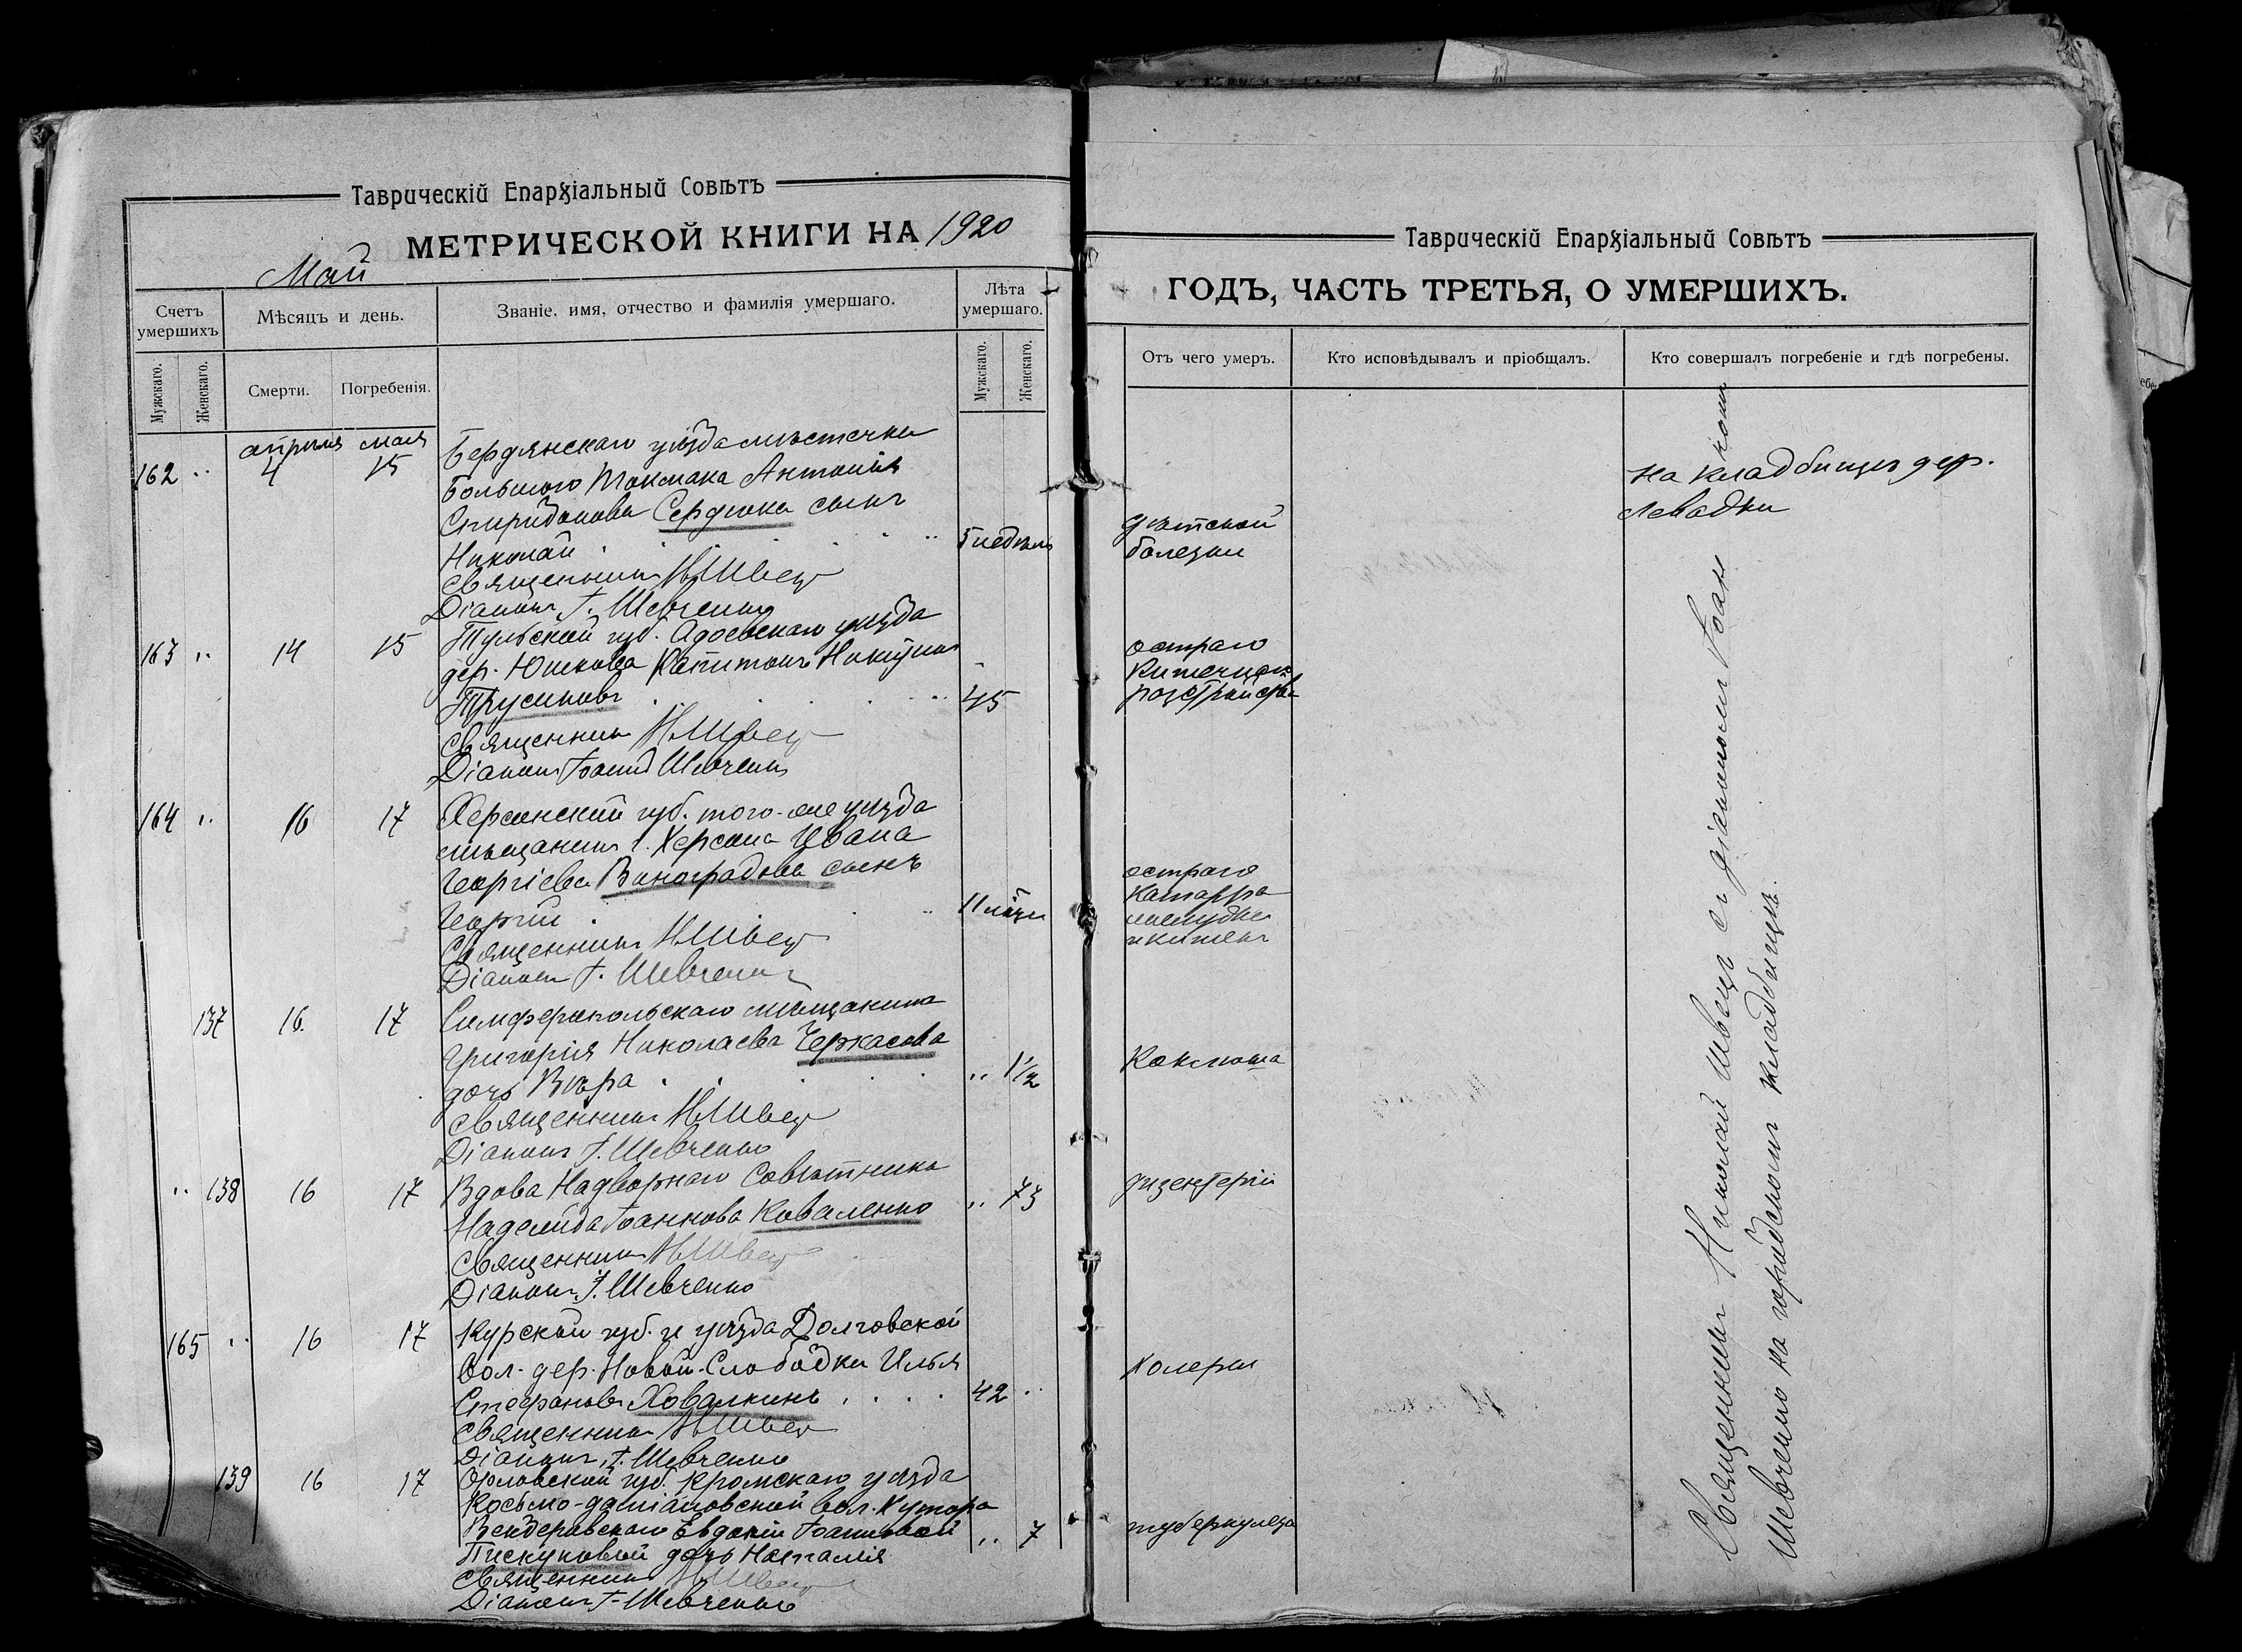 Таврическій Епархіальный Совѣтъ
МЕТРИЧЕСКОЙ КНИГИ НА 1920
Май
Счетъ умершихъ
Мѣсяцъ и день.
Званіе, имя, отчество и фамилія умершаго.
Лѣта умершаго.
Мужскаго.
Женскаго.
Смерти.
Погребенія.
Мужскаго.
Женскаго.
апрѣля мая
162 ·· 4 15 Бердянскаго уѣзда мѣстечка
Большого Токмака Антонія
Спиридонова Сердюка сынъ
Николай 5 недѣль
Священникъ Н Швец
Діаконъ І. Шевченко
163 ·· 14 15 Тульской губ. Адоевскаго уѣзда
дер. Юшкова Капитонъ
Трусиковъ 45
Священникъ Н Швец
Діаконъ Іоаннъ Шевченко
164 ·· 16 17 Херсонской губ. того-же уѣзда
мѣщанина г. Херсона Ивана
Георгіева Виноградова сынъ
Георгій 11 мѣс
Священникъ Н Швец
Діаконъ І. Шевченко
137 16. 17 Симферопольскаго мѣщанина
Григорія Николаева Черкасова
дочь Вѣра ·· 1 1/2
Священникъ Н Швец
Діаконъ І. Шевченко
·· 138 16 17 Вдова Надворнаго Совѣтника
Надежда Іоаннова Коваленко ·· 73
Священникъ Н Швец
Діаконъ І. Шевченко
165 ·· 16 17 Курской губ. и уѣзда Долговской
вол. дер. Новой-Слободки Илья
Стефановъ Ховалкинъ 42 ··
Священникъ Н Швец
Діаконъ І. Шевченко
139 16 17 Орловской губ. Кромскаго уѣзда
Косьмо-даміановской вол. Хутора
Бендеровскаго Евдокіи Іоанновой ·· 7
Пискуновой дочь Наталія
Священникъ Н Швец
Діаконъ І. Шевченко
Таврическій Епархіальный Совѣтъ
ГОДЪ, ЧАСТЬ ТРЕТЬЯ, О УМЕРШИХЪ.
Отъ чего умеръ.
Кто исповѣдывалъ и пріобщалъ.
Кто совершалъ погребеніе и гдѣ погребены.
на кладбищѣ дер.
Левадки
дѣтской
болезни
остраго
кишечнаго
разстройства
остраго
катарра
желудка
и кишекъ
Коклюша
дизентеріи
холеры
туберкулеза
Священникъ Николай Швецъ съ діакономъ Іоанномъ
Шевченко на городскомъ кладбищѣ.